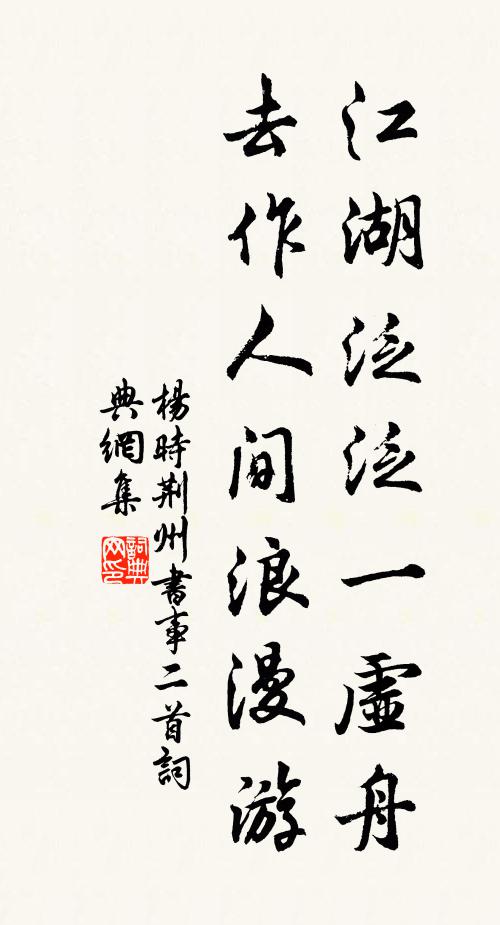 江湖泛泛一虛舟
去作人間浪漫游
楊時荆州書事二首詞
典網集
詞典網印